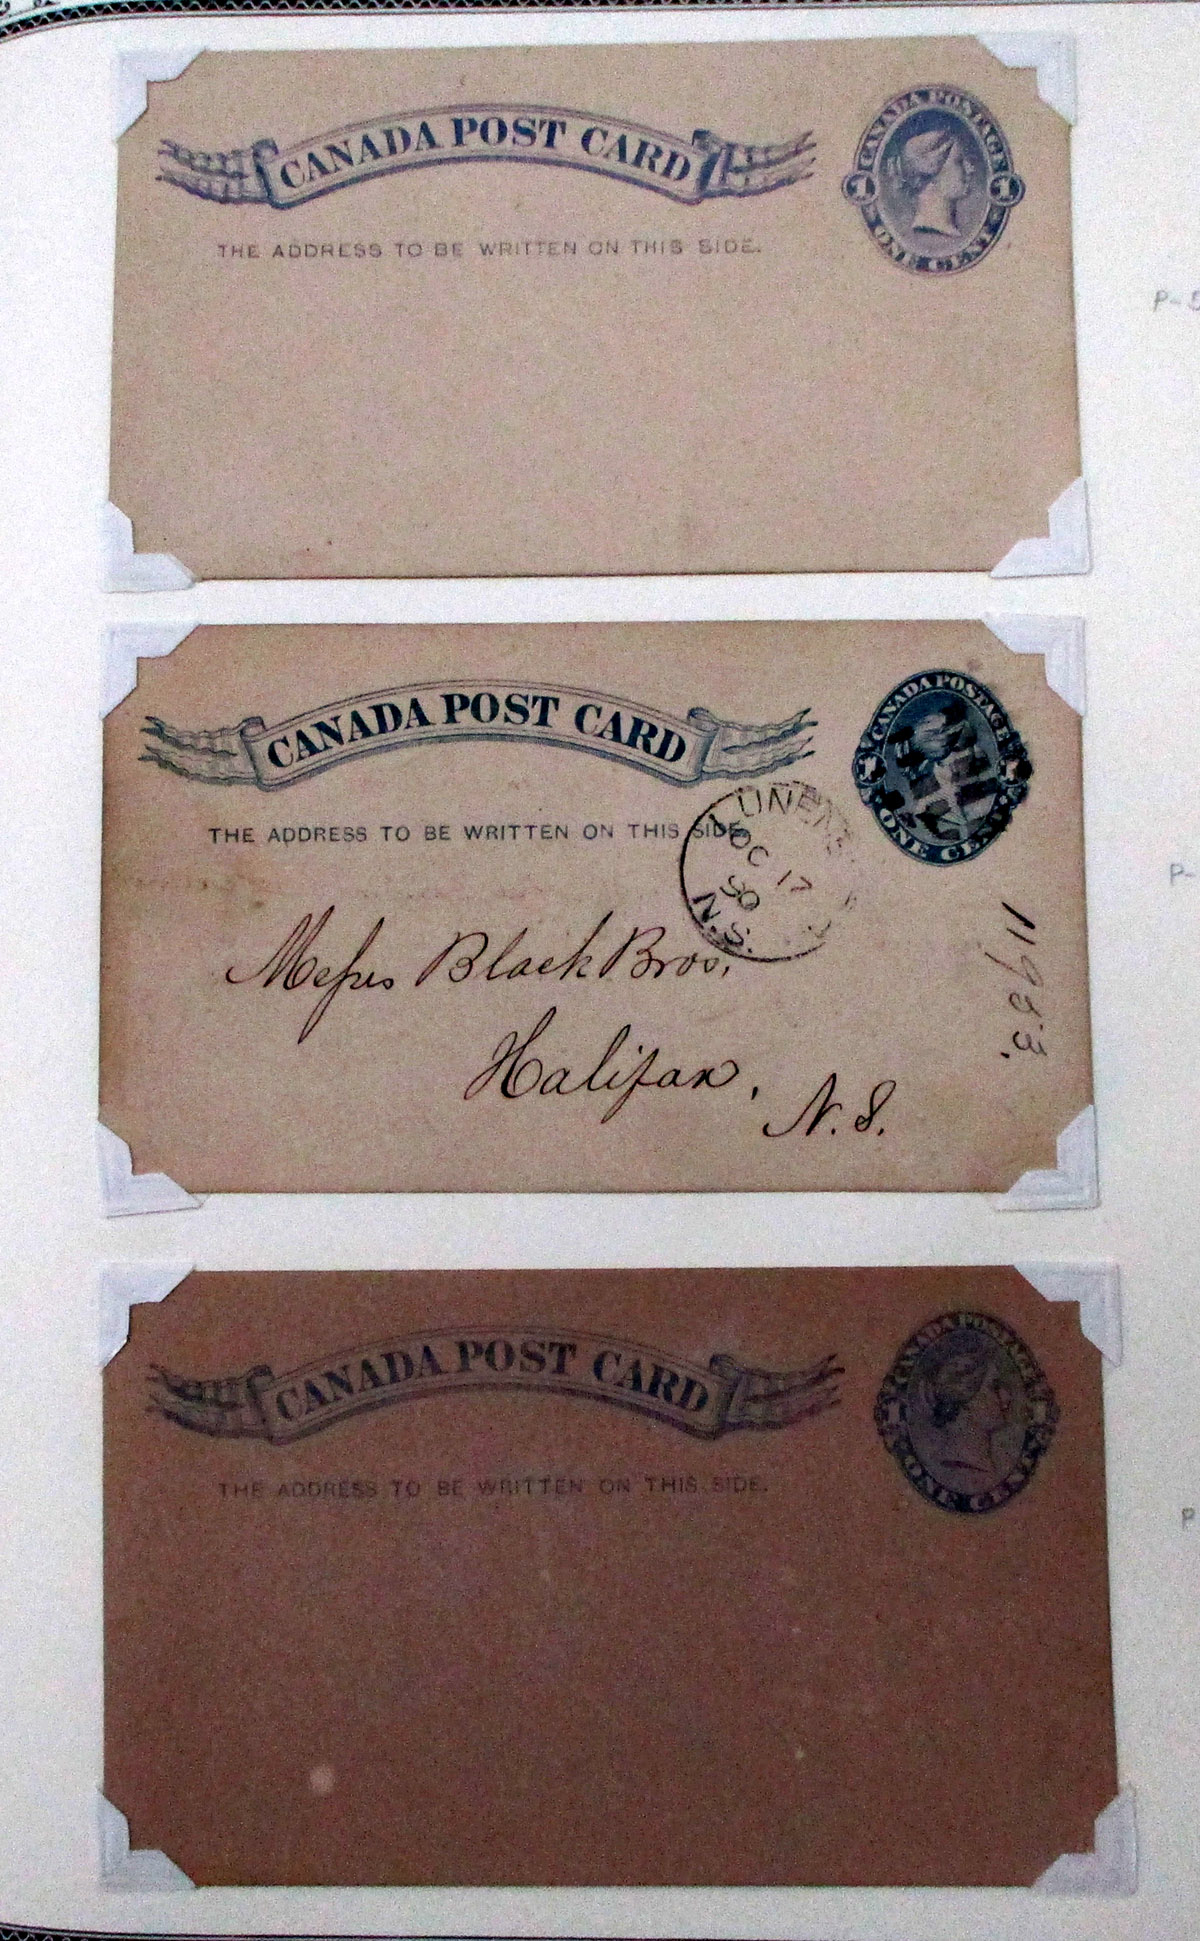 CANADA POST CARD
CANADA POSTAGE
1 1
ONE CENT
THE ADDRESS TO BE WRITTEN ON THIS SIDE.
CANADA POST CARD
CANADA POSTAGE
1 1
ONE CENT
THE ADDRESS TO BE WRITTEN ON THIS SIDE.
OC 17
N.S.
Messrs Black Bros,
Halifax,
N. S.
CANADA POST CARD
CANADA POSTAGE
1 1
ONE CENT
THE ADDRESS TO BE WRITTEN ON THIS SIDE.